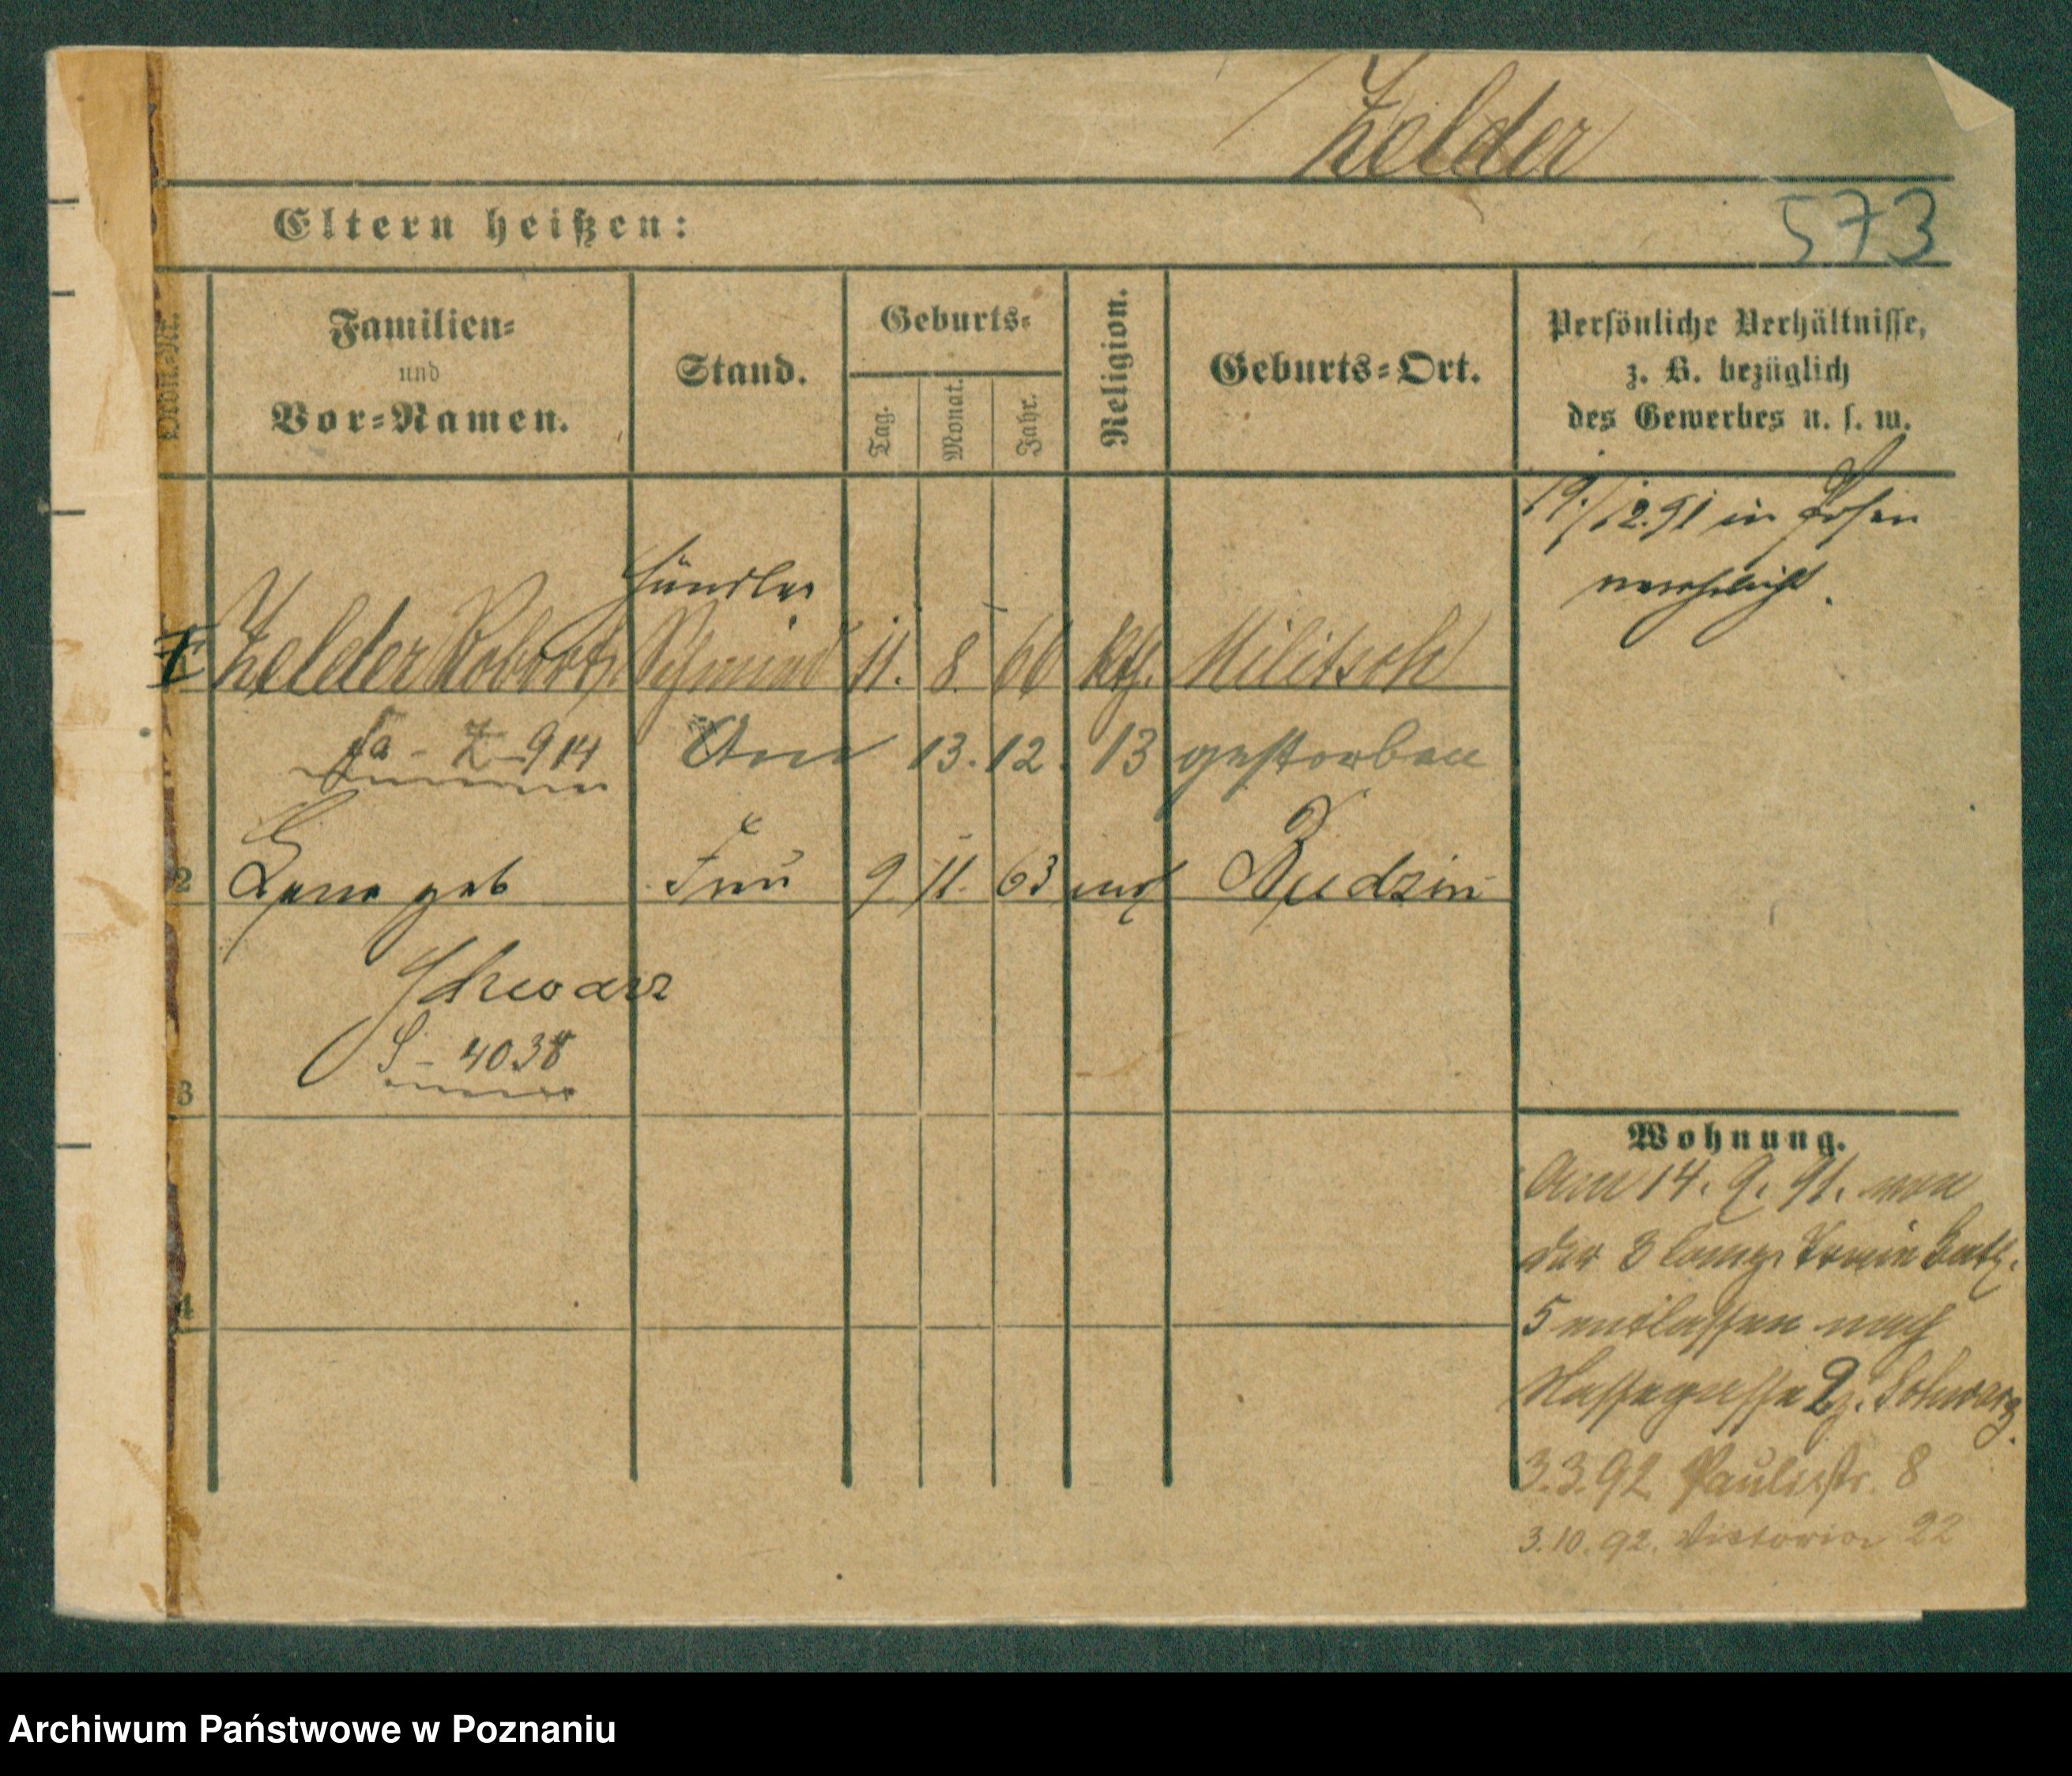 Zelder
573
Eltern heißen:
Ordn.-Nr.
Familien-
und
Vor-Namen.
Stand.
Geburts-
Tag.
Monat.
Jahr.
Religion.
Geburts-Ort.
Persönliche Verhältnisse,
z. B. bezüglich
des Gewerbes u. s. w.
19./12.91 in Posen
verehelicht.
Händler
Zelder Robert Schmied 11. 8. 66 kth. Militsch
Z 914 Am 13. 12. 13 gestorben
2 geb Frau 9. 11. 63 Budzin
Schwarz
S - 4038
3
4
Wohnung.
Am 14. 9. 91. von
der 3 Comp. Train Batl.
5 entlassen nach
Nassegasse 2 z. Schwarz.
3.3.92 Paulistr. 8
3.10.92. Victoria 22
Archiwum Państwowe w Poznaniu